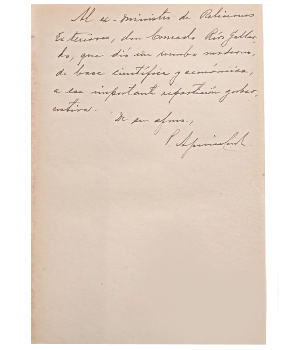 Al ex-Ministro de Relaciones
Exteriores, don Conrado Ríos Galla-
do, que dió un rumbo moderno,
de base científica y económica,
a esa importante repartición guber-
nativa.
De su afmo.,
P. Aguirre Cerda